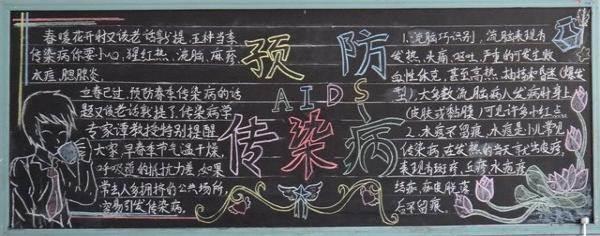 春暖花开时又该老话新提，五种当季
传染病你要小心，猩红热、流脑、麻疹
水痘、腮腺炎。
立春已过，预防春季传染病的话
题又该老话新提了，传染病学
专家谭教授特别提醒
大家，早春季节气温干燥，
呼吸道的抵抗力差，如果
常去人多拥挤的公共场所，
容易引发传染病。
预 防
AIDS
传染病
1、流脑巧识别，流脑表现有
发热、头痛、呕吐，严重的可发生败
血性休克，甚至高热、抽搐、昏迷（爆发
型），大多数流脑病人发病时身上
（皮肤或黏膜）可见许多小红点
2、水痘不留痕，水痘是儿童常见
传染病，在发热的当天就出皮疹，
表现有斑疹、丘疹、水疱疹
结痂，
后不留痕。